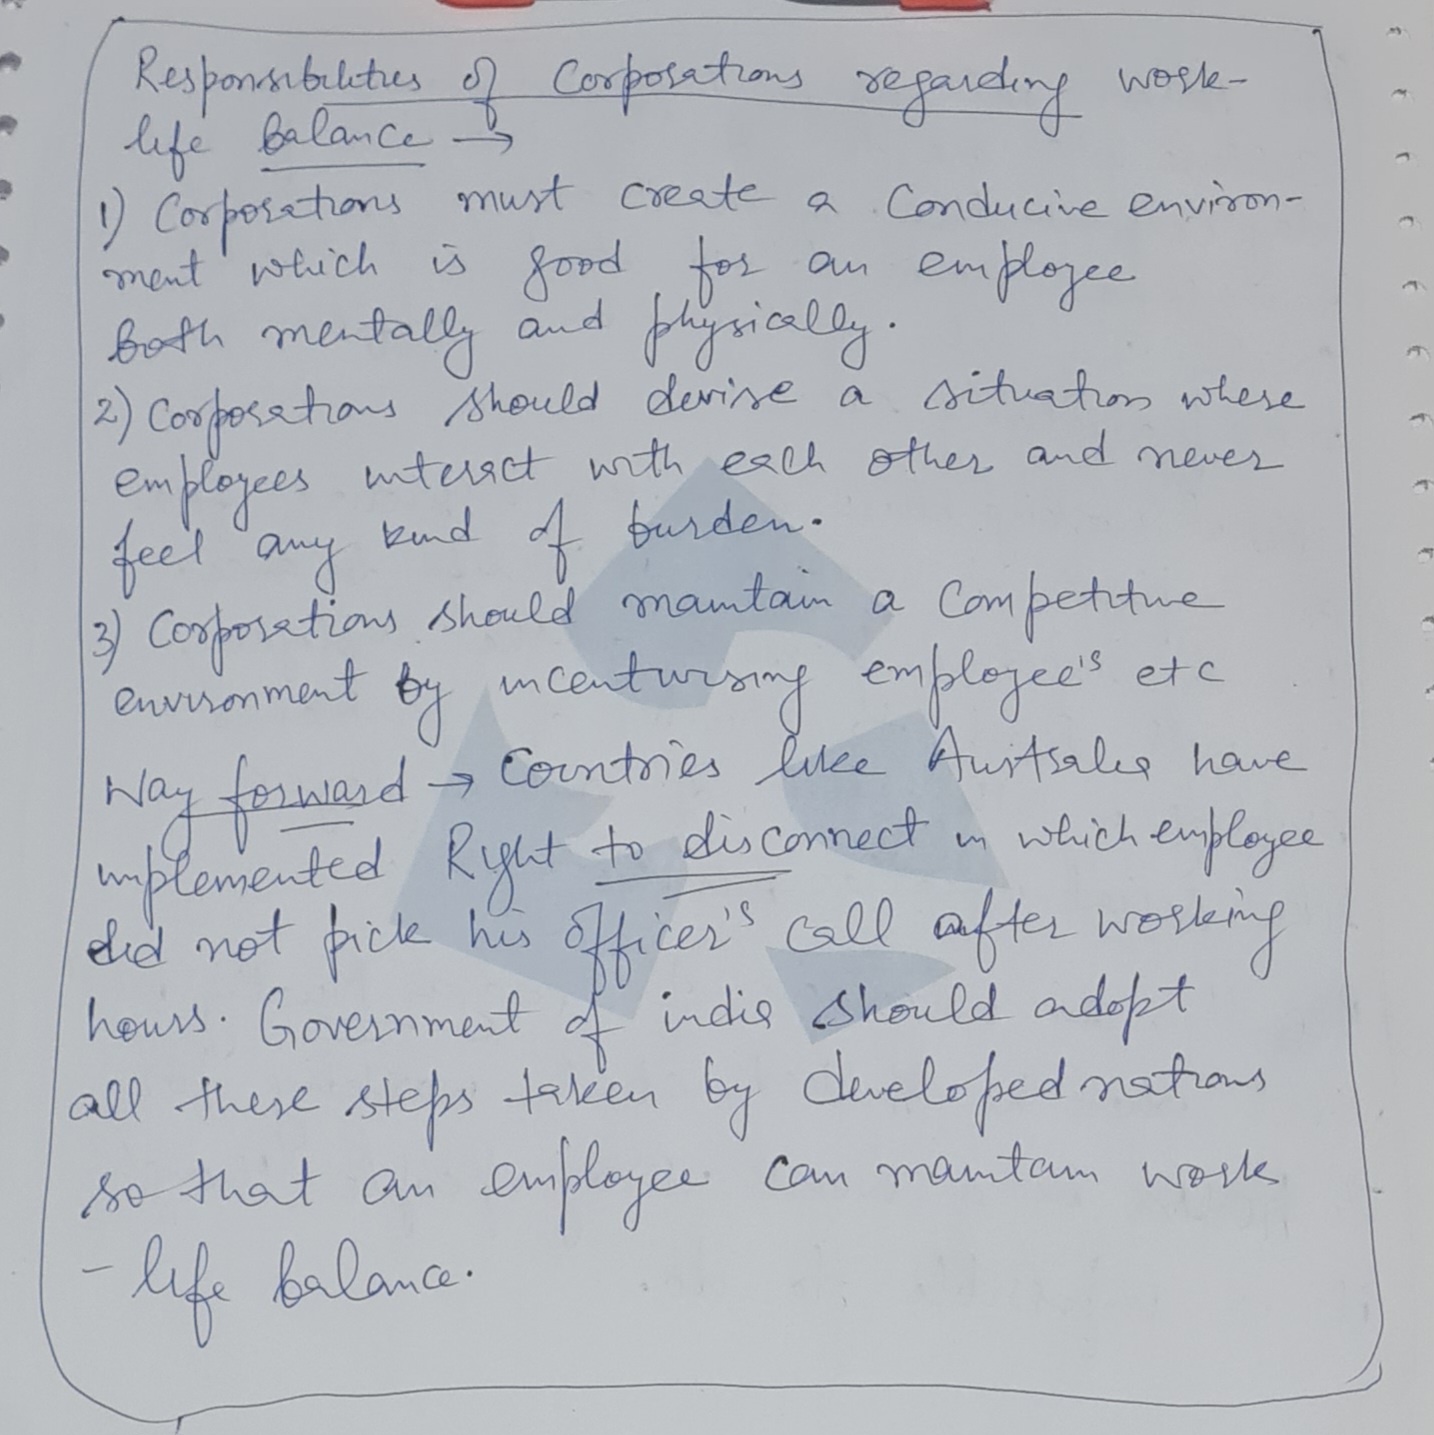 Responsibilities of Corporations regarding work-
life balance →
1) Corporations must create a conducive environ-
ment which is good for an employee
both mentally and physically.
2) Corporations should devise a situation where
employees interact with each other and never
feel any kind of burden.
3) Corporations should maintain a competitive
environment by incentivising employee's etc
Way forward → Countries like Australia have
implemented Right to disconnect in which employee
did not pick his officer's call after working
hours. Government of india should adopt
all these steps taken by developed nations
so that an employee can maintain work
- life balance.